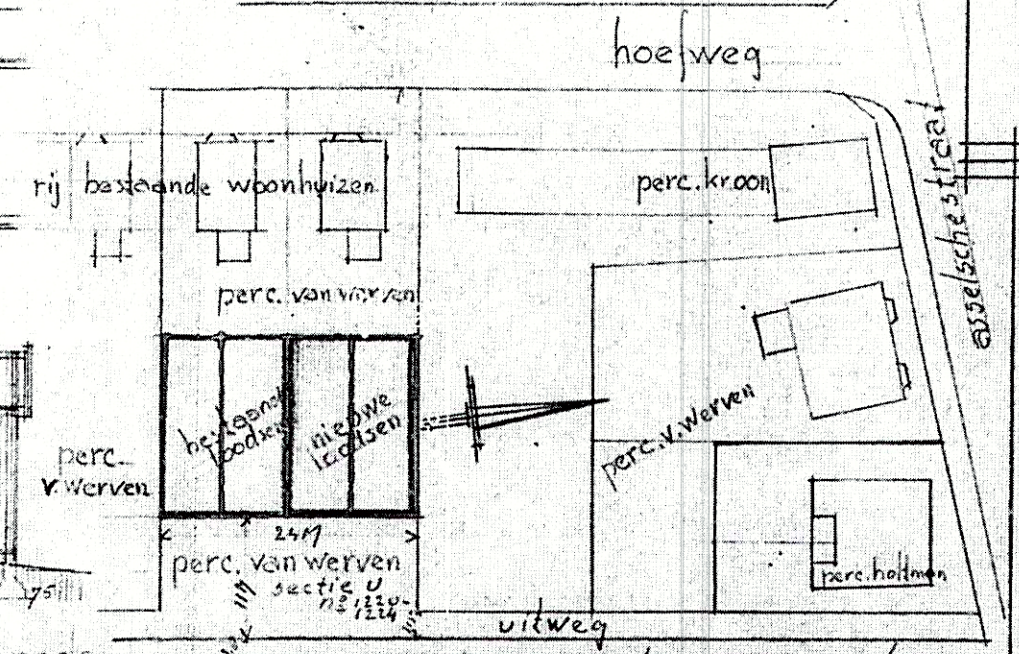 hoefweg
asselschestraat
rij bestaande woonhuizen
perc. kroon
perc. van werven
bestaande
loodsen
nieuwe
loodsen
perc. v. Werven
perc.
v. Werven
24M
perc. van werven
sectie U
1224
11M
75
perc. holtman
uitweg